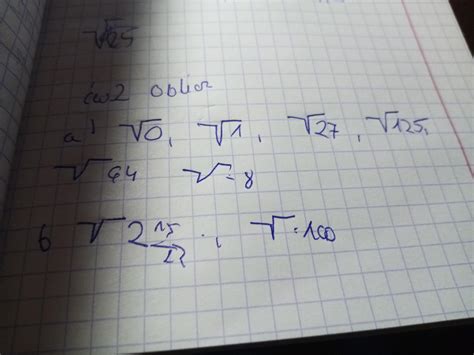 √25
ćw2 oblicz
a) √0, √1, √27, √125,
√64 √-8
b √2 , √-100